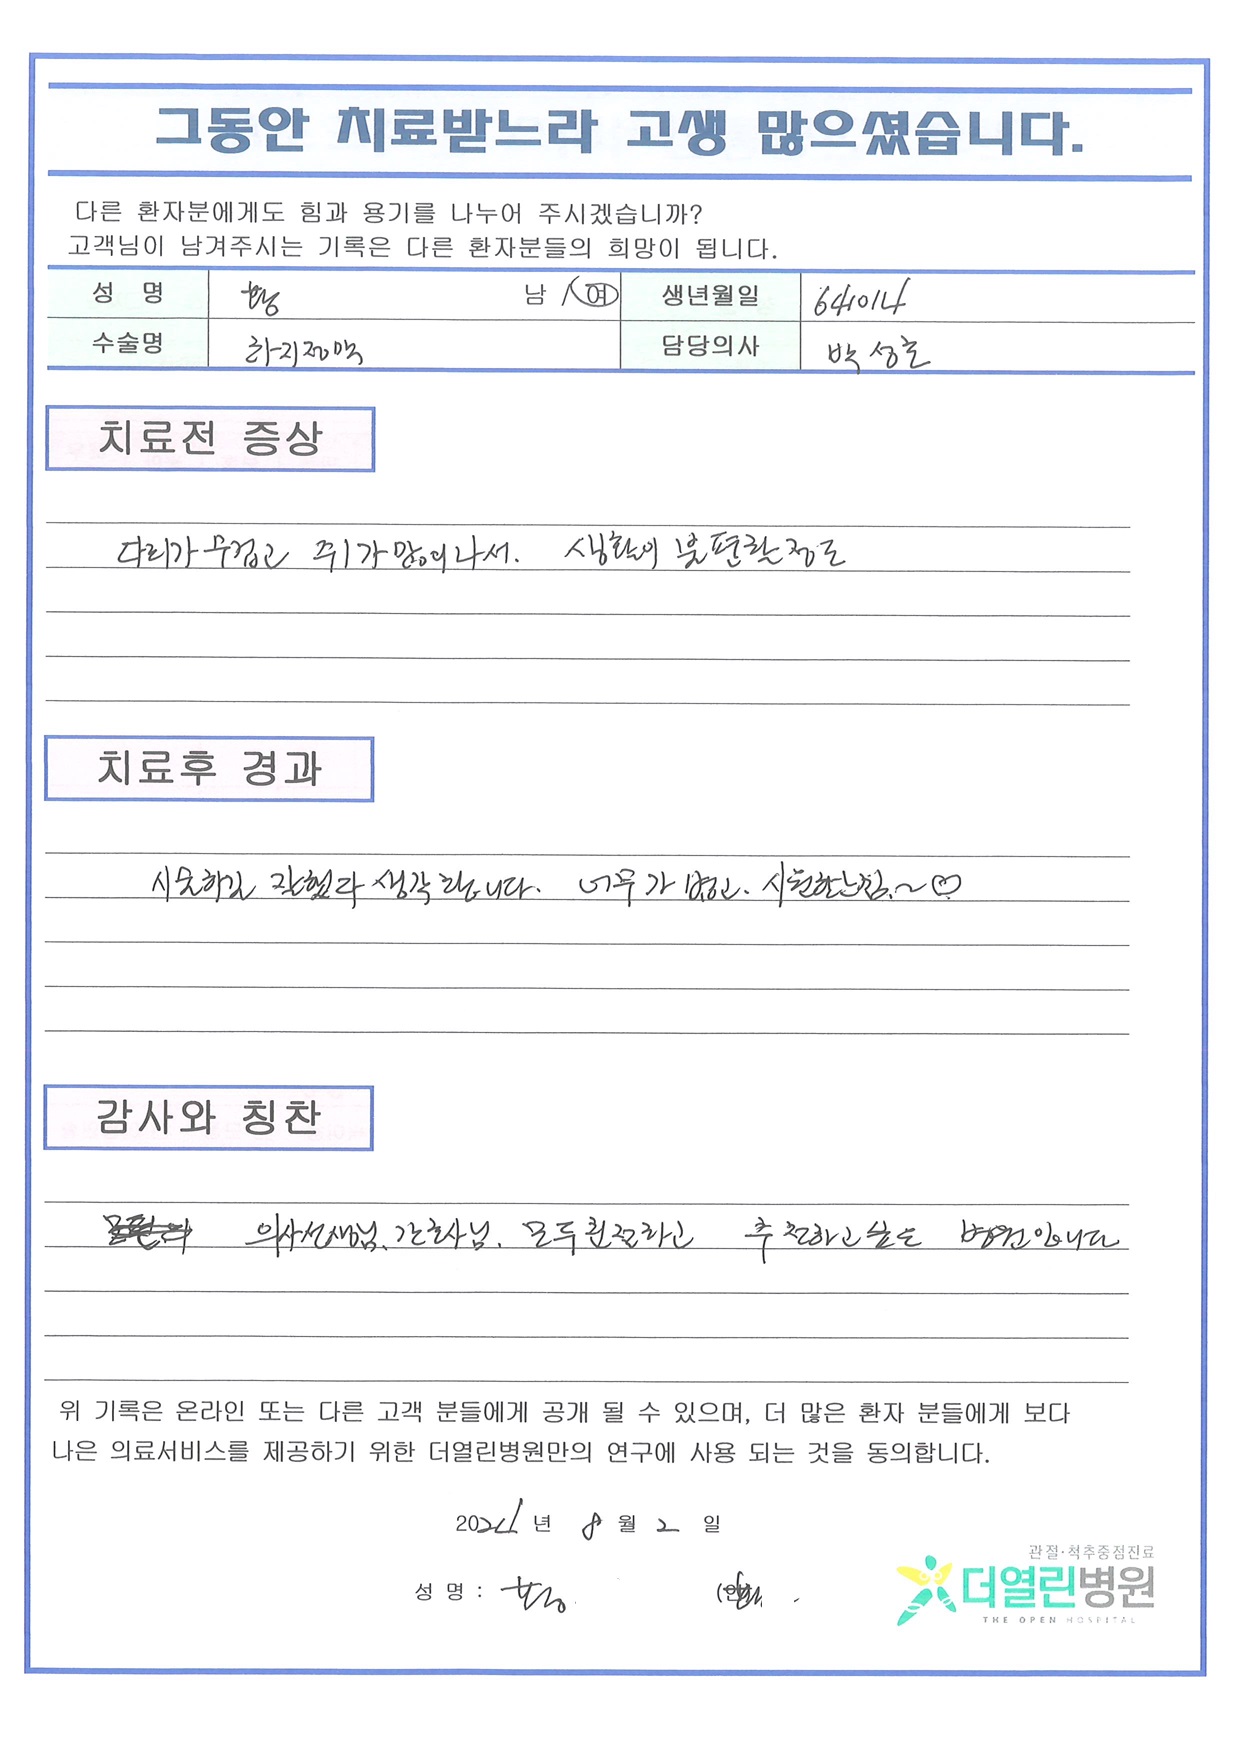 그동안 치료받느라 고생 많으셨습니다.
다른 환자분에게도 힘과 용기를 나누어 주시겠습니까?
고객님이 남겨주시는 기록은 다른 환자분들의 희망이 됩니다.
성 명 황 남 / 여 생년월일
수술명 하지정맥 담당의사 박성준
치료전 증상
다리가 무겁고 쥐가 많이 나서. 생활이 불편할 정도
치료후 경과
시술하길 잘했다 생각합니다. 너무 가볍고. 시원한 느낌.~♡
감사와 칭찬
의사선생님, 간호사님, 모두 친절하고 추천하고 싶은 병원입니다
위 기록은 온라인 또는 다른 고객 분들에게 공개 될 수 있으며, 더 많은 환자 분들에게 보다
나은 의료서비스를 제공하기 위한 더열린병원만의 연구에 사용 되는 것을 동의합니다.
2024년 8월 2일
성 명 : 황
관절·척추중점진료
더열린병원
THE OPEN HOSPITAL